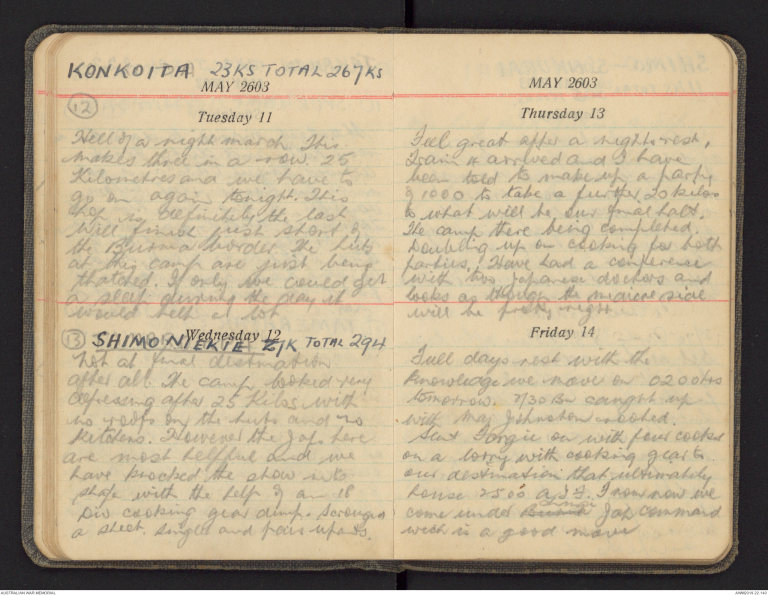 KONKOITA 23KS TOTAL 267KS
MAY 2603
Tuesday 11
12
Hell of a night march. This
makes three in a row. 25
Kilometres and we have to
go on again tonight. This
hop is definitely the last
will finish just short of
the Burma border. The huts
at this camp are just being
thatched. If only we could get
a sleep during the day it
would help a lot
Wednesday 12
13 SHIMO NIEKIE 27K TOTAL 294
Not at final destination
after all. The camp looked very
depressing after 25 Kilos with
no roofs on the huts and no
kitchens. However the Jap here
are most helpful and we
have knocked the show into
shape with the help of an 18
Div cooking gear dump. Scrounged
a sheet. singlet and pair
MAY 2603
Thursday 13
Feel great after a nights rest.
Train 4 arrived and I have
been told to make up a party
of 1000 to take a further 20 kilos
to what will be our final halt.
The camp there being completed.
Doubling up on cooking for both
parties. Have had a conference
with two Japanese doctors and
looks as though the medical side
will be pretty right
Friday 14
Full days rest with the
knowledge we move on 0200hrs
tomorrow. 2/30 Bn caught up
with Maj Johnston
Sent Forgie on with four cooks
on a lorry with cooking gear to
our destination that ultimately
house 2500 I now now we
come under Jap command
wich is a good move
AUSTRALIAN WAR MEMORIAL